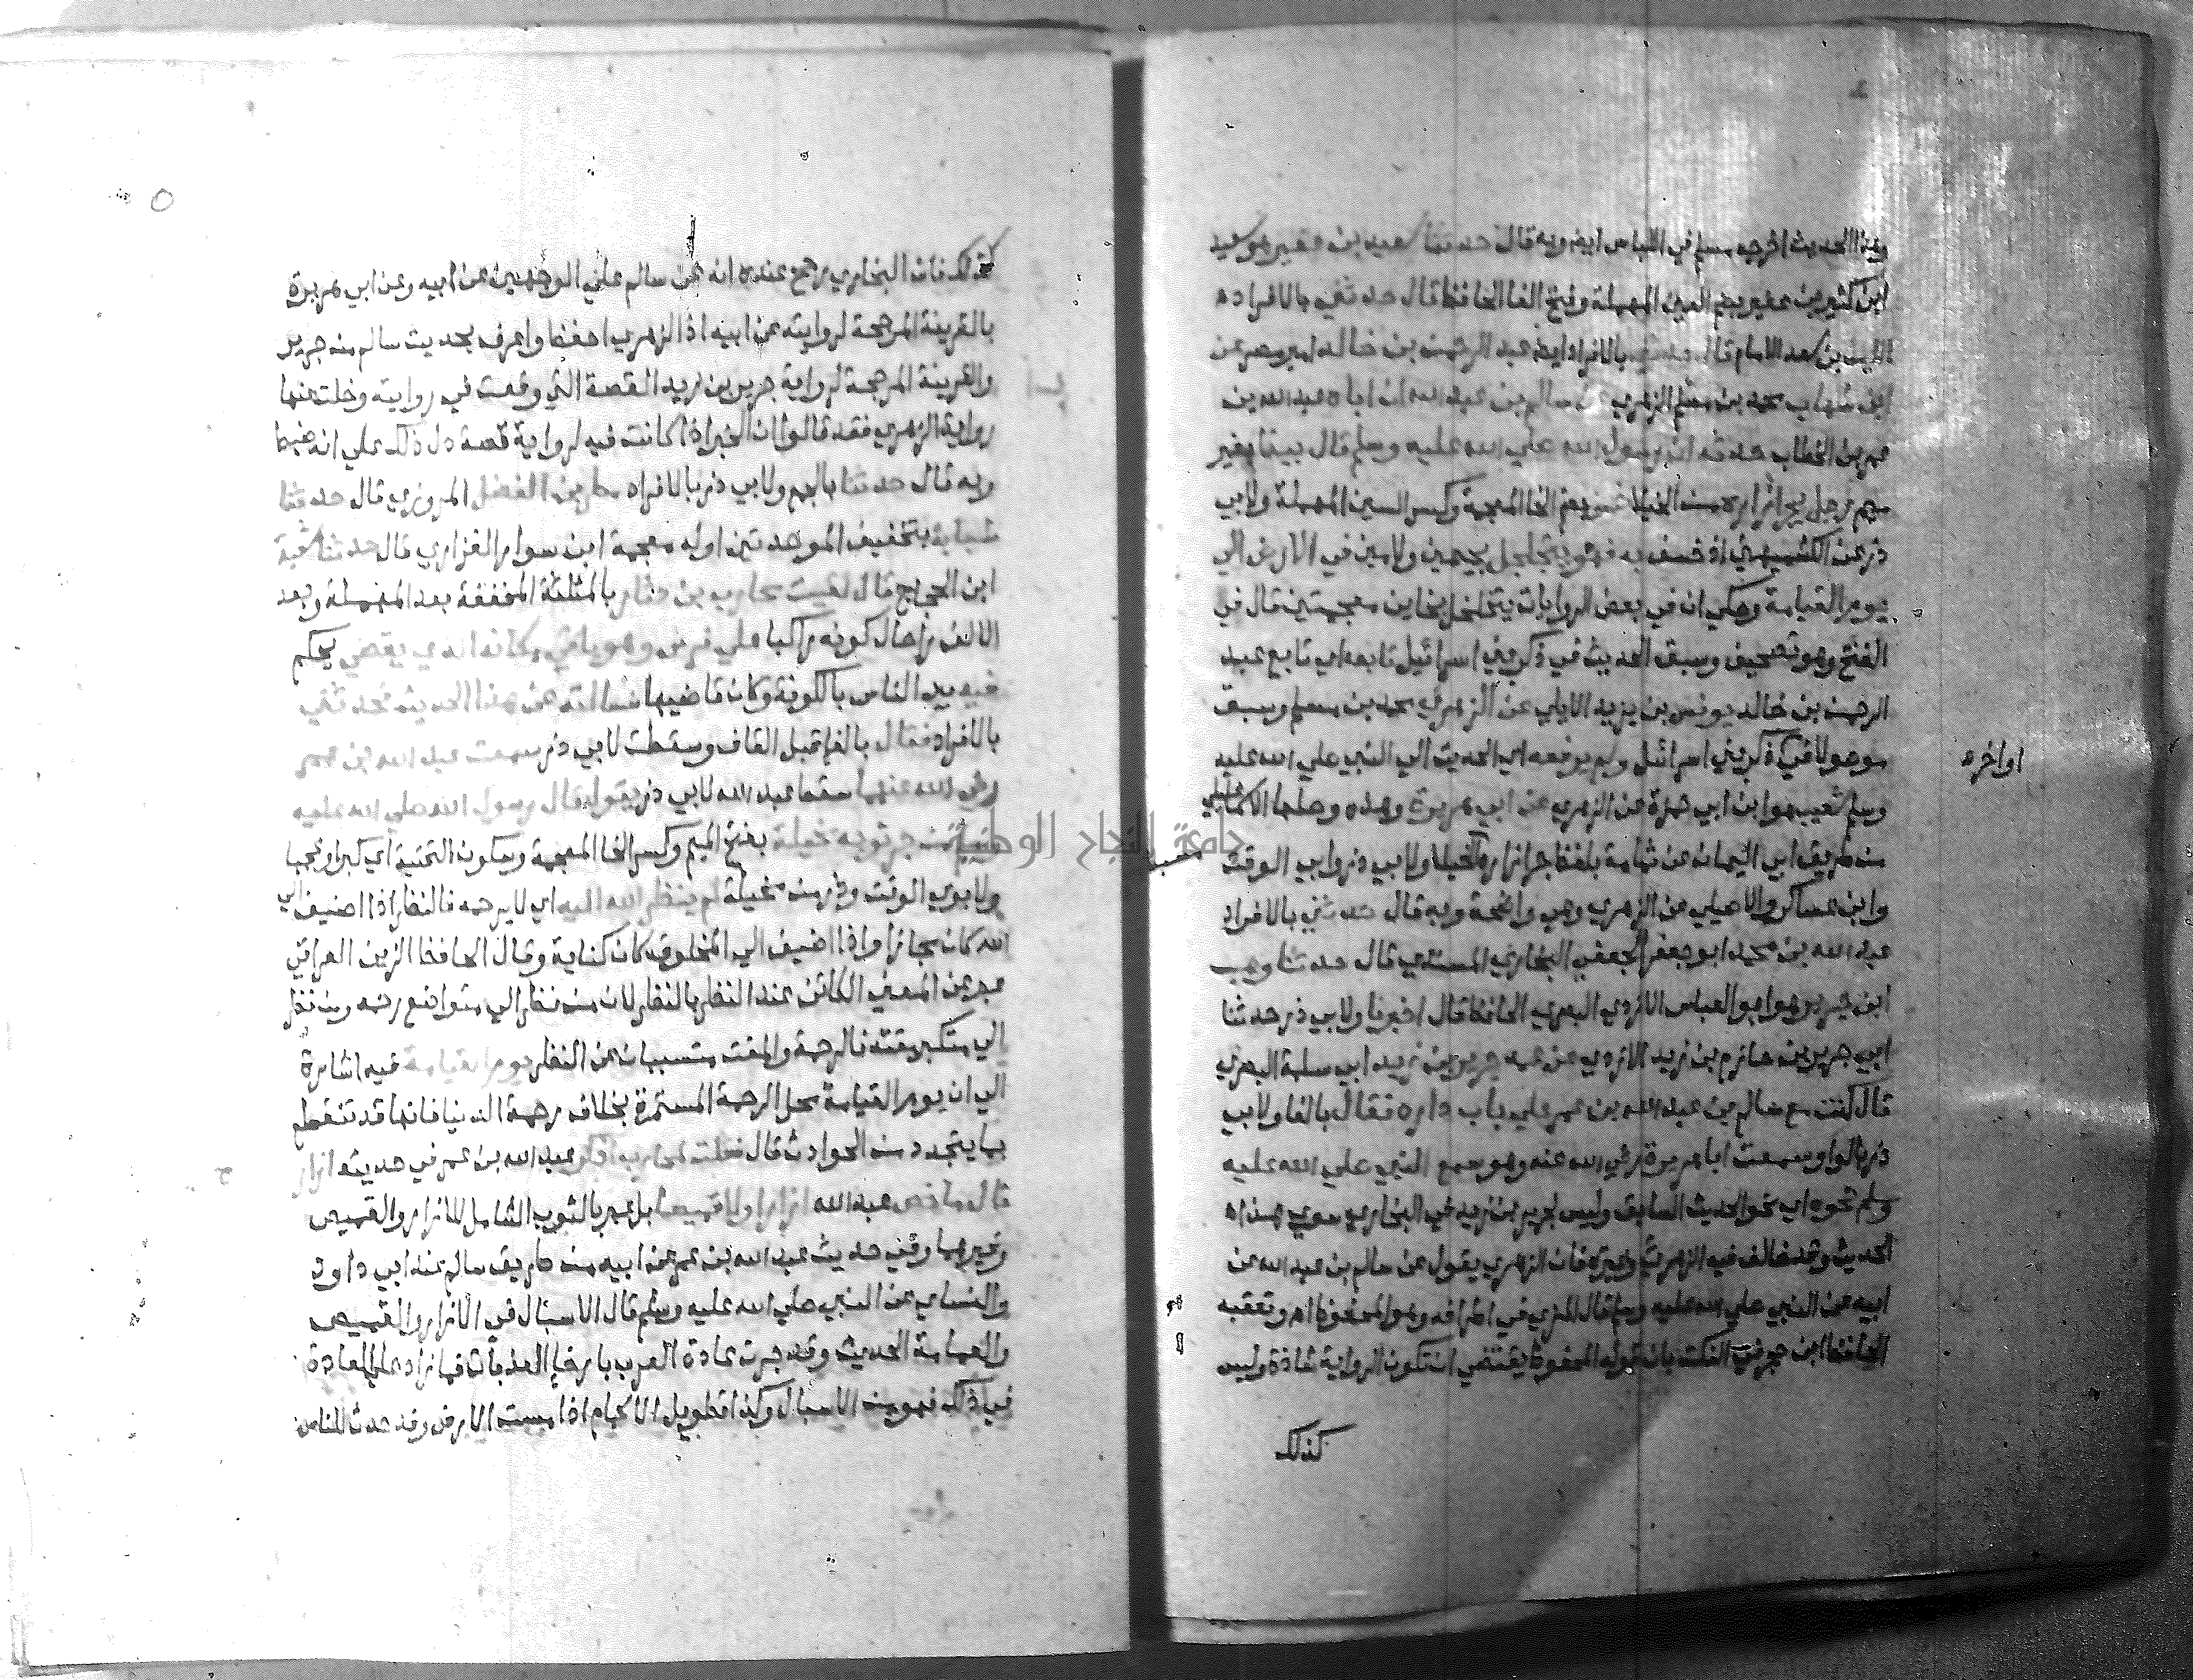 وهذا الحديث اخرجه مسلم في اللباس ايضا وبه قال حدثنا سعيد بن عفير هو سعيد
ابن كثير بن عفير بضم العين المهملة وفتح الفا الحافظ قال حدثني بالافراد
الليث بن سعد الامام قال حدثني بالافراد ايضا عبد الرحمن بن خالد امير مصر عن
ابن شهاب محمد بن مسلم الزهري عن سالم بن عبد الله ان اباه عبد الله بن
عمر بن الخطاب حدثه ان رسول الله صلي الله عليه وسلم قال بينا بغير
ميم رجل يجر ازاره من الخيلا خسف بضم الخا المعجمة وكسر السين المهملة ولابي
ذر عن الكشميهني اذ خسف به فهو يتجلجل بجيمين ولامين في الارض الي
يوم القيامة وحكي ان في بعض الروايات يتخلخل بخاين معجمتين قال في
الفتح وهو تصحيف وسبق الحديث في ذكر بني اسرائيل تابعه اي تابع عبد
الرحمن بن خالد يونس بن يزيد الايلي عن الزهري محمد بن مسلم وسبق
موصولا في ذكر بني اسرائيل ولم يرفعه اي الحديث الي النبي صلي الله عليه
اواخره
وسلم شعيب هو ابن ابي حمزة عن الزهري عن ابي هريرة وهذه وصلها الاسماعيلي
من طريق ابي اليمان عن ثمامة بلفظ جر ازاره الخيلا ولابي ذر وابي الوقت
وابن عساكر والاصيلي عن الزهري وهي واضحة وبه قال حدثني بالافراد
عبد الله بن محمد ابو جعفر الجعفي البخاري المسندي قال حدثنا وهب
ابن جرير هو ابو العباس الازدي البصري الحافظ قال اخبرنا ولابي ذر حدثنا
ابي جرير بن حازم بن زيد الازدي عن عمه جرير بن زيد ابي سلمة البصري
قال كنت مع سالم بن عبد الله بن عمر علي باب داره فقال بالفا ولابي
ذر بالواو سمعت ابا هريرة رضي الله عنه وهو سمع النبي صلي الله عليه
وسلم نحوه اي نحو الحديث السابق وليس لجرير بن زيد في البخاري سوي هذا
الحديث وقد خالف فيه الزهري وغيره فان الزهري يقول عن سالم بن عبد الله عن
ابيه عن النبي صلي الله عليه وسلم قال المزي في اطرافه وهو المحفوظ اه وتعقبه
الحافظ ابن حجر في النكت بان قوله المحفوظ يقتضي ان تكون الرواية شاذة وليس
كذلك
كذلك فان البخاري رجح عنده انه عن سالم علي الوجهين عن ابيه وعن ابي هريرة
بالقرينة المرجحة لروايته عن ابيه اذ الزهري احفظ واعرف بحديث سالم من جرير
والقرينة المرجحة لرواية جرير بن زيد القصة التي وقعت في روايته وخلت عنها
رواية الزهري فقد قالوا ان الخبر اذا كانت فيه لرواية قصة دل ذلك علي انه ضبط
وبه قال حدثنا بالجمع ولابي ذر بالافراد مطر بن الفضل المروزي قال حدثنا
شبابة بتخفيف الموحدتين اوله معجمة ابن سوار الفزاري قال حدثنا شعبة
ابن الحجاج قال لقيت محارب بن دثار بالمثلثة المخففة بعد المهملة وبعد
الالف را حال كونه راكبا علي فرس وهو ياتي مكانه الذي يقضي يحكم
فيه بين الناس بالكوفة وكان قاضيها فسالته عن هذا الحديث فحدثني
بالافراد فقال بالفا قبل القاف وسقطت لابي ذر سمعت عبد الله بن عمر
رضي الله عنهما سقط عبد الله لابي ذر يقول قال رسول الله صلي الله عليه
وسلم من جر ثوبه مخيلة بفتح الميم وكسر الخا المعجمة وسكون التحتية اي كبرا وعجبا
ولابوي الوقت وذر من مخيلة لم ينظر الله اليه اي لا يرحمه فالنظر اذا اضيف الي
الله كان مجازا واذا اضيف الي المخلوق كان كناية وقال الحافظ الزين العراقي
عبر عن المعني الكائن عند النظر بالنظر لان من نظر الي متواضع رحمه ومن نظر
الي متكبر مقته فالرحمة والمقت متسببان عن النظر يوم القيامة فيه اشارة
الي ان يوم القيامة محل الرحمة المستمرة بخلاف رحمة الدنيا فانها قد تنقطع
بما يتجدد من الحوادث قال فقلت لمحارب اذكر عبد الله بن عمر في حديثه ازاره
قال ما خص عبد الله ازارا ولا قميصا بل عبر بالثوب الشامل للازار والقميص
وغيرهما وفي حديث عبد الله بن عمر عن ابيه من طريق سالم عند ابي داود
والنساي عن النبي صلي الله عليه وسلم قال الاسبال في الازار والقميص
والعمامة الحديث وقد جرت عادة العرب بارخا العذبات فما زاد علي العادة
في ذلك فهو من الاسبال وكذا تطويل الاكمام اذا مست الارض وقد حدث للناس
جامعة النجاح الوطنية